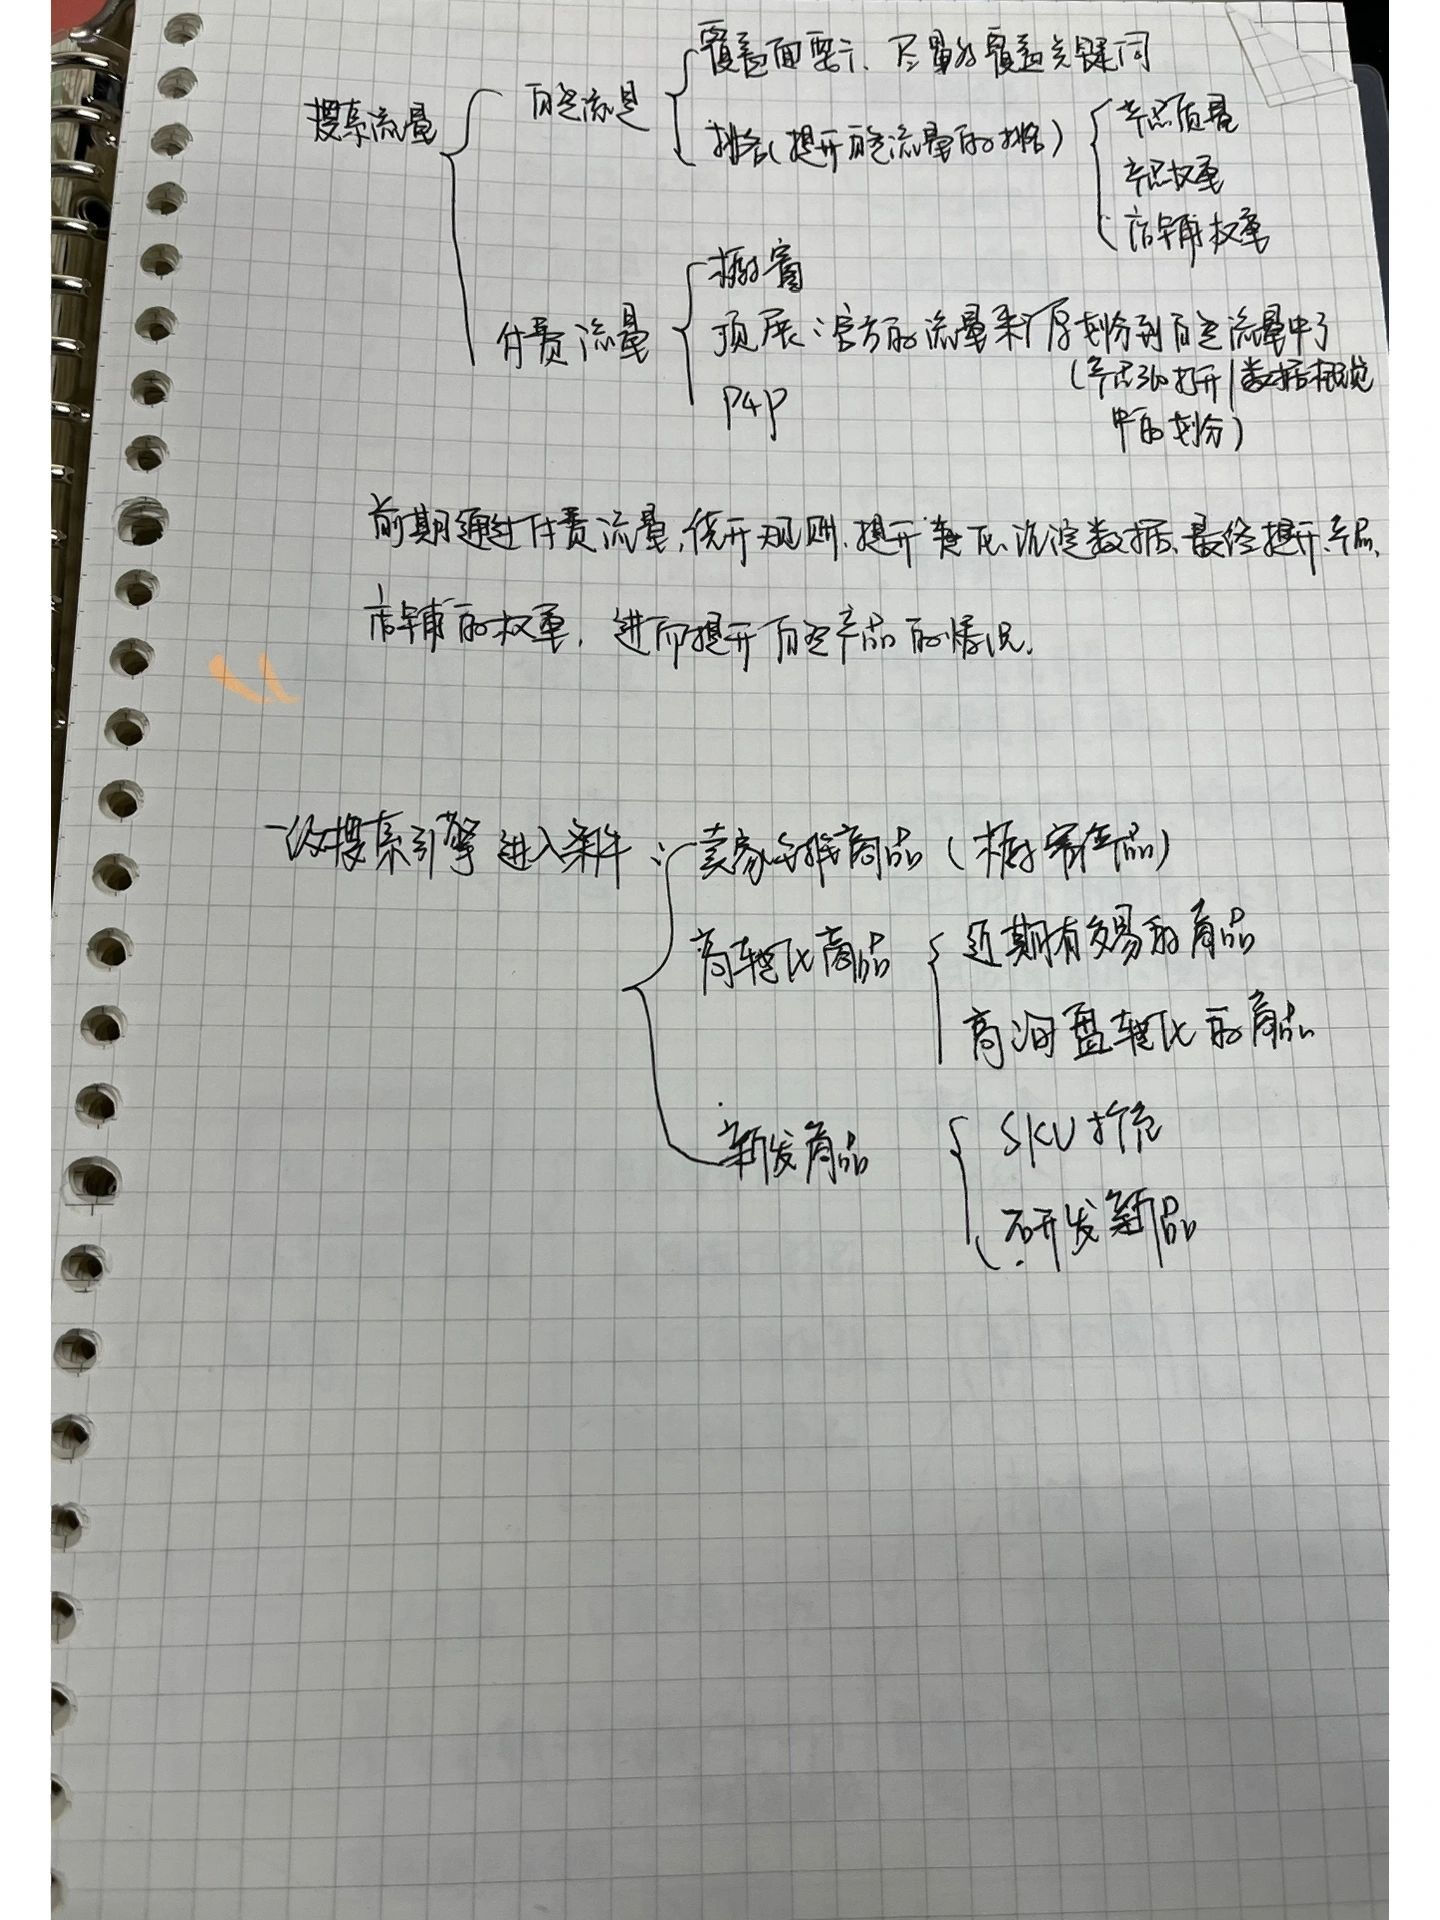 搜索流量
自然流量
覆盖面要广、尽量的覆盖关键词
排名(提升自然流量的排名)
产品质量
产品权重
店铺权重
付费流量
橱窗
顶展:官方的流量来源划分到自然流量中了
(产品360打开/数据概览
中的划分)
P4P
前期通过付费流量,绕开规则、提升转化、沉淀数据、最终提升产品、
店铺的权重,进而提升自然产品的情况.
一级搜索引擎进入条件:
卖家主推商品(橱窗产品)
高转化商品
近期有交易的商品
高询盘转化的商品
新发商品
SKU扩充
研发新品